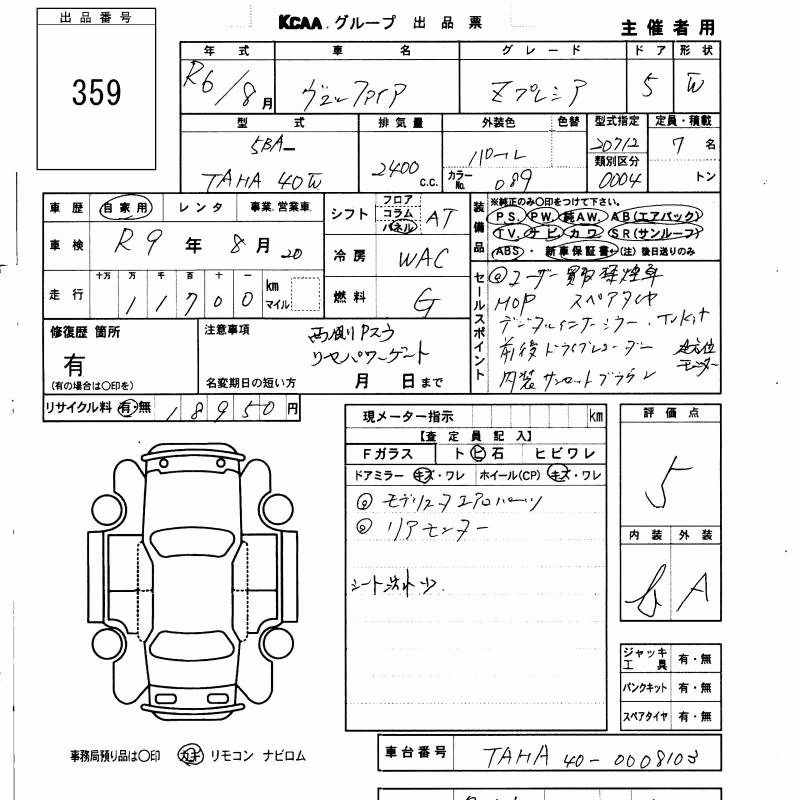 出品番号
359
KCAA.グループ 出品票
主催者用
年式 車名 グレード ドア 形状
R6/8月 ヴェルファイア Zプレミア 5 W
型式 排気量 外装色 色替 型式指定 定員・積載
5BA- 20712 7名
2400 c.c. パール 類別区分
TAHA 40W カラーNo. 089 0004 トン
車歴 自家用 レンタ 事業.営業車
シフト フロア コラム パネル AT
車検 R9年 8月 20
冷房 WAC
走行 十万 万 千 百 十 一
11700 km マイル
燃料 G
装備品
※純正のみ〇印をつけて下さい。
PS. PW. 純AW. AB(エアバック)
TV. ナビ カワ SR(サンルーフ)
ABS ・ 新車保証書←(注) 後日送りのみ
セールスポイント
◎ユーザー買取禁煙車
MOP スペアタイヤ
デジタルインナーミラー.TVkit
前後ドライブレコーダー
内装サンセットブラウン
修復歴 箇所
有
(有の場合は〇印を)
注意事項
両側Pスラ
リヤパワーゲート
名変期日の短い方 月 日まで
リサイクル料 有・無 18950円
現メーター指示 km
【査定員記入】
Fガラス ト ヒ 石 ヒビワレ
ドアミラー キズ・ワレ ホイール(CP) キズ・ワレ
◎ モデリスタエアロパーツ
◎ リアモニター
シート汚れ少.
評価点
5
内装 外装
b A
ジャッキ工具 有・無
パンクキット 有・無
スペアタイヤ 有・無
事務局預り品は〇印 カギ リモコン ナビロム
車台番号 TAHA 40-0008103